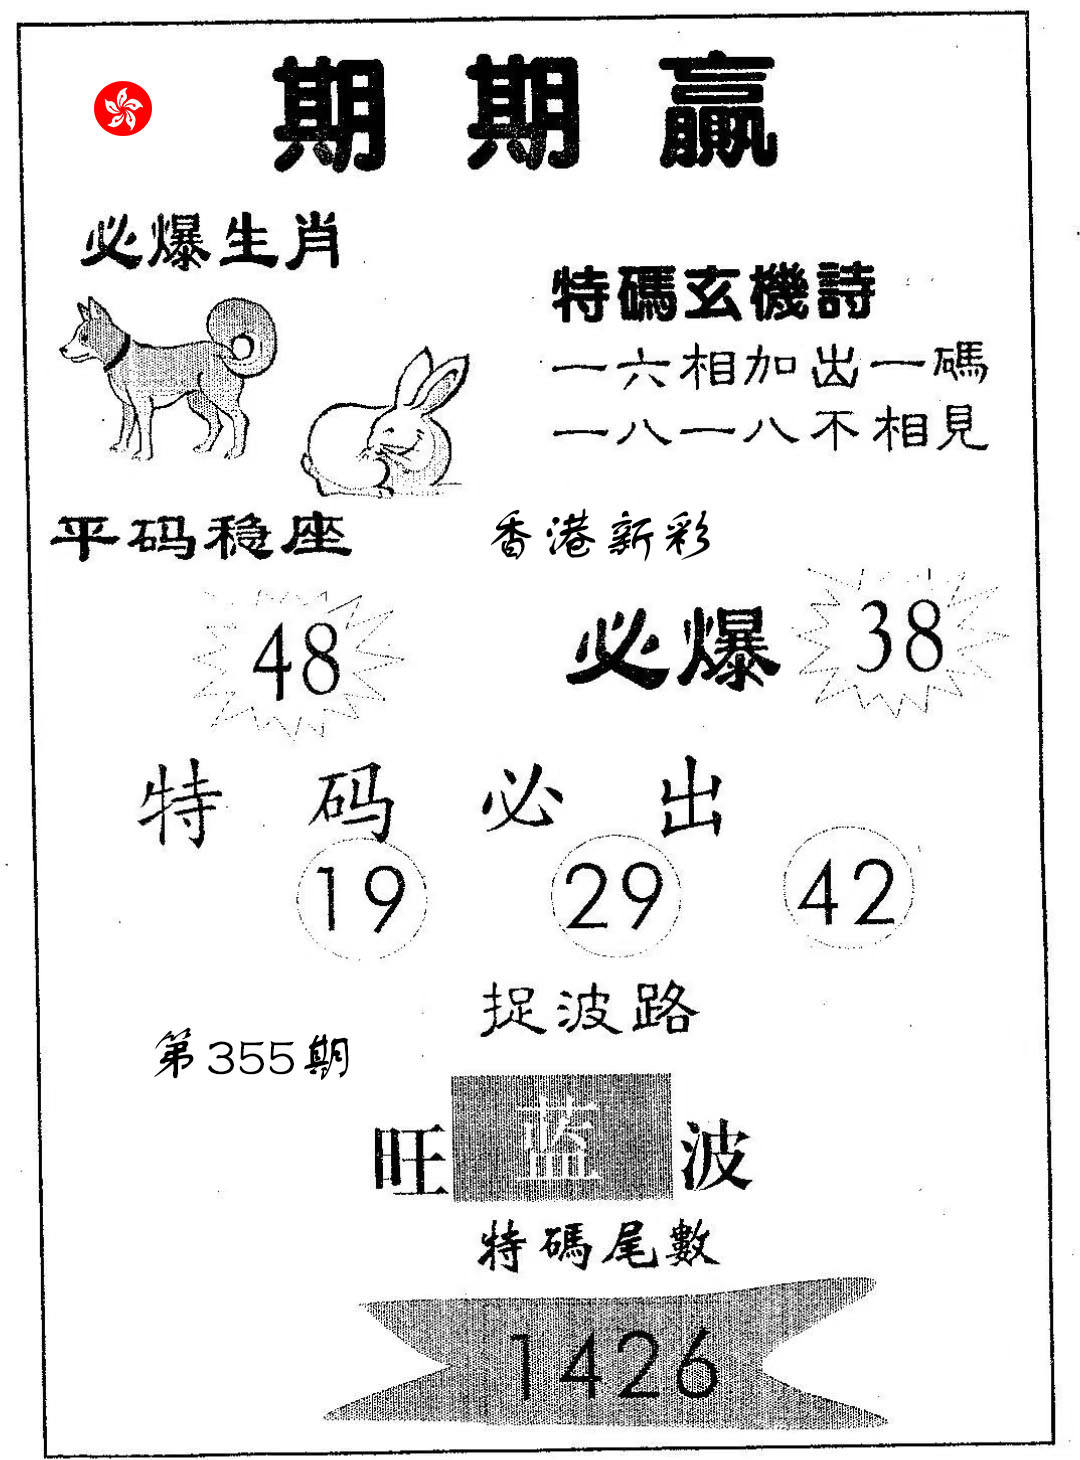 期期贏
必爆生肖
特碼玄機詩
一六相加出一碼
一八一八不相見
平码稳座
香港新彩
48
必爆 38
特码必出
19 29 42
捉波路
第355期
旺蓝波
特碼尾數
1426